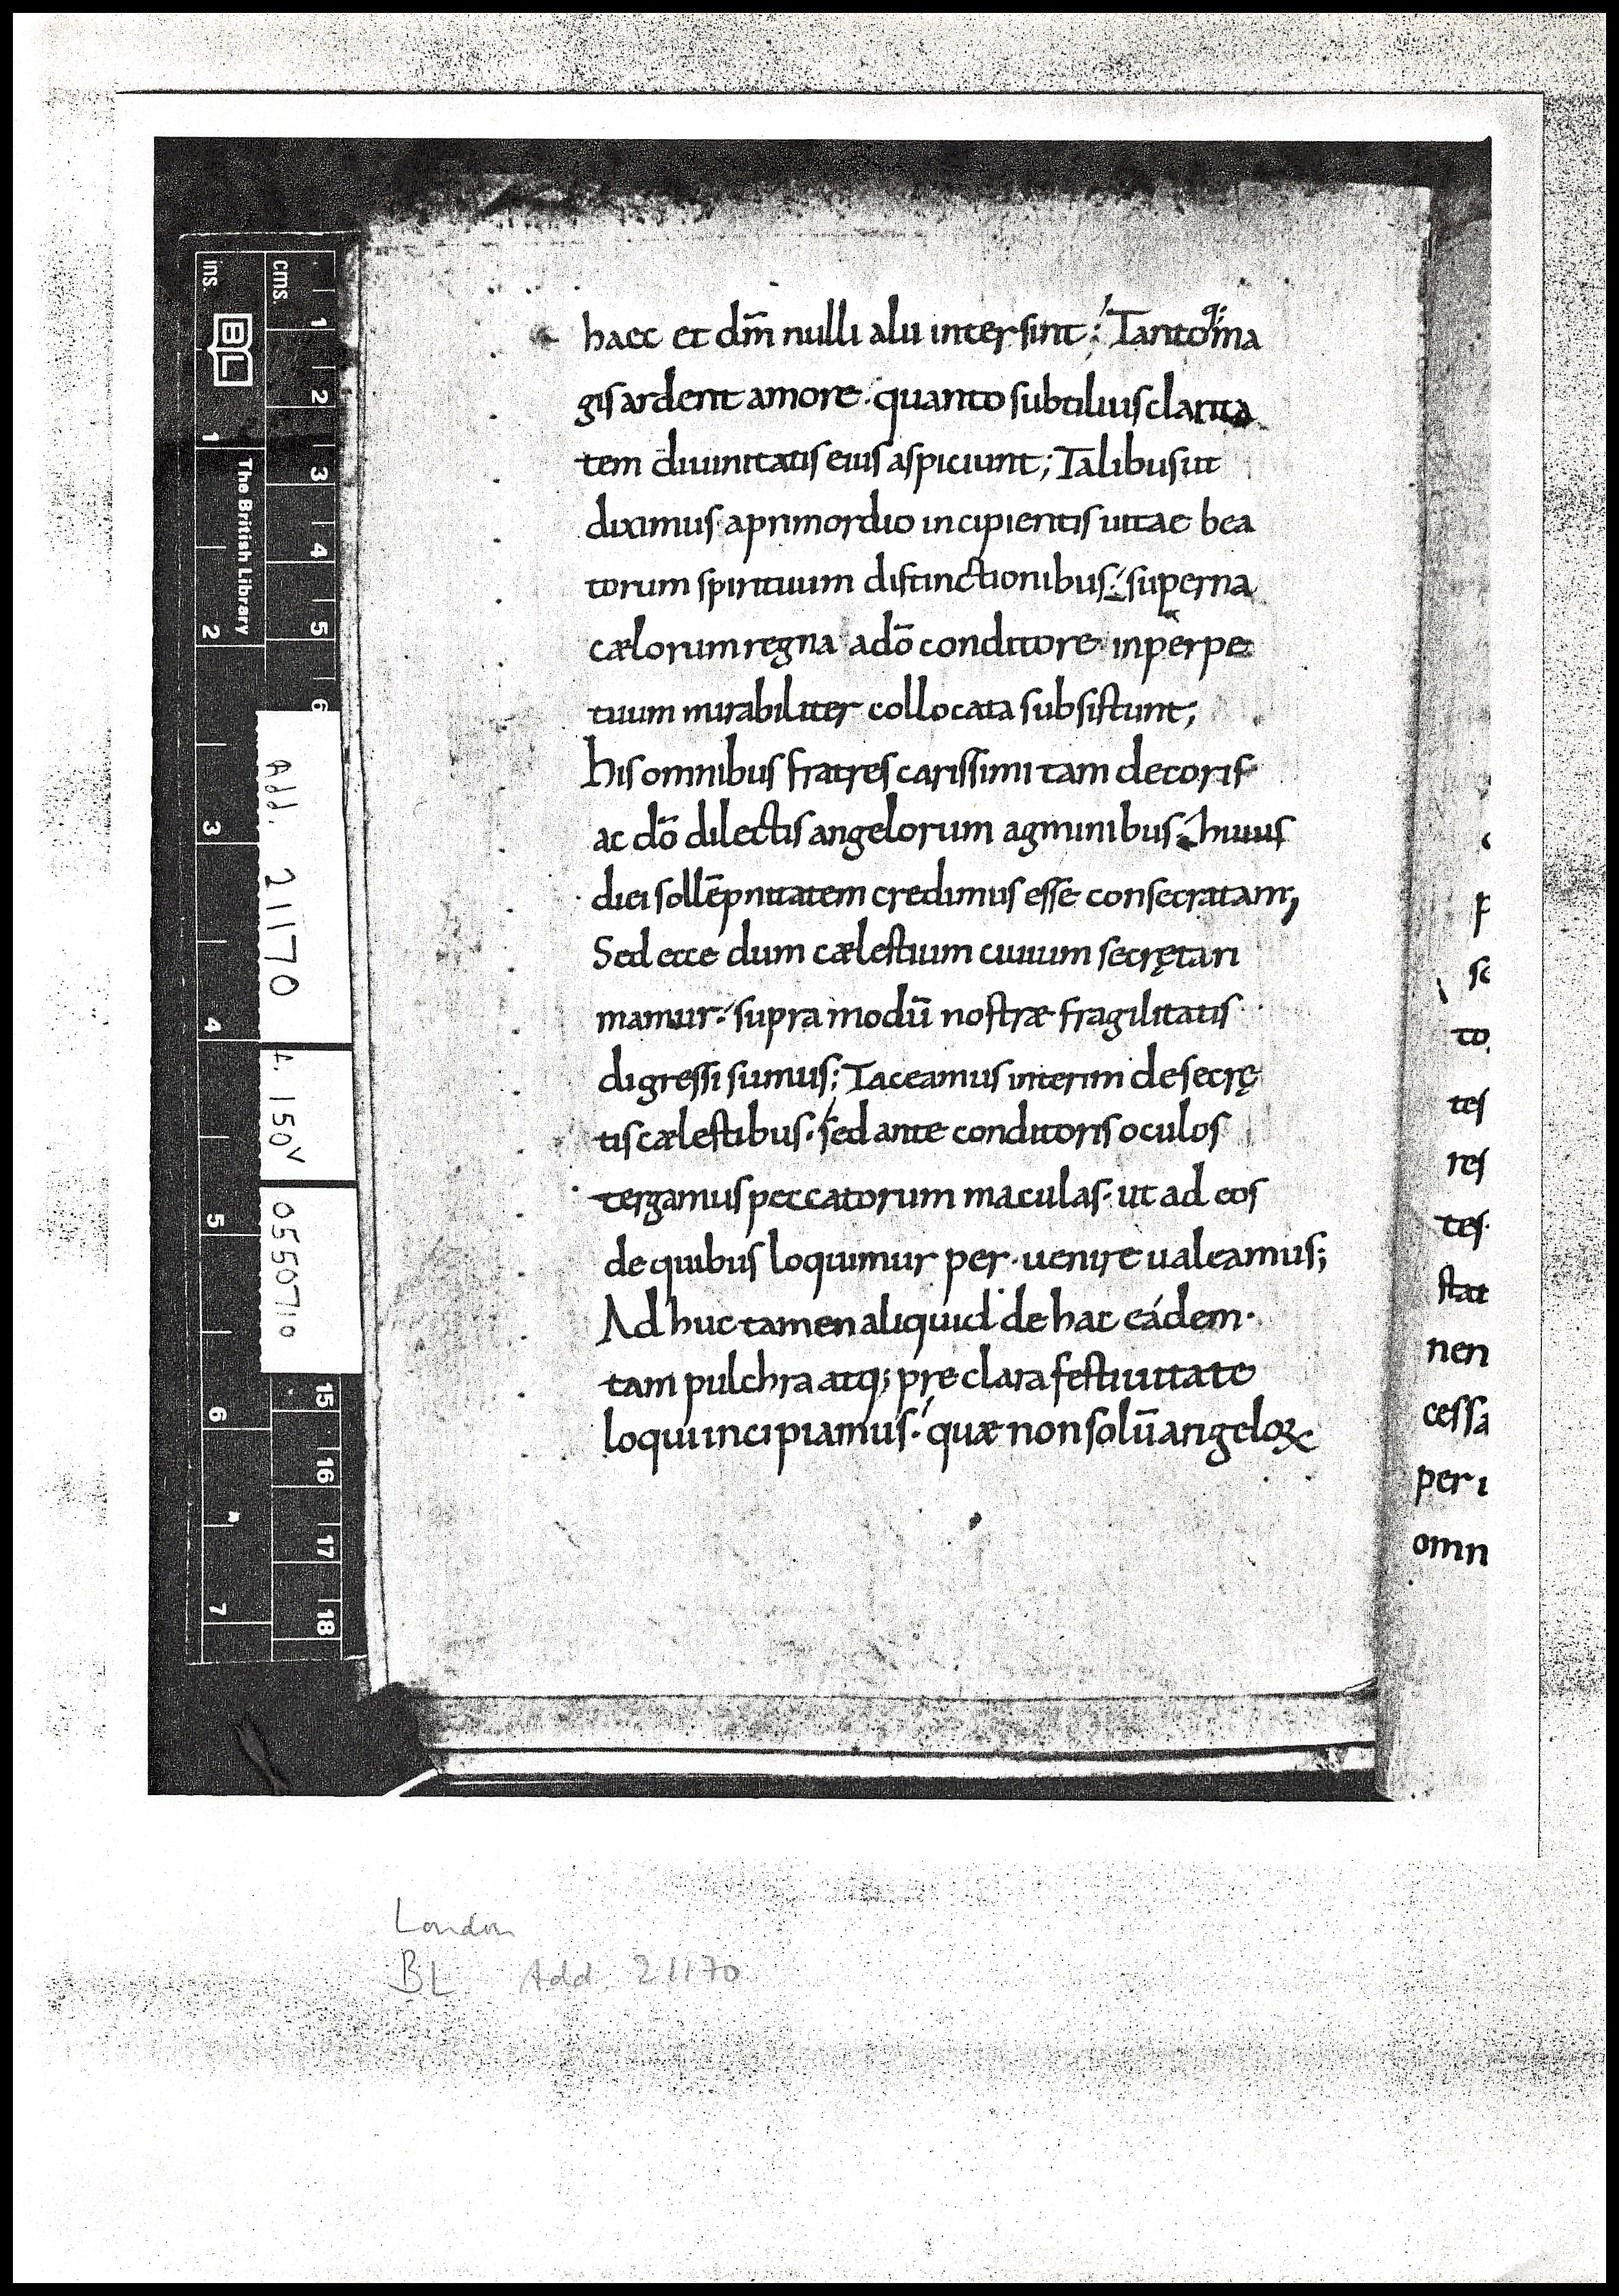 haec et dm̄ nulli alii intersint; Tantoq; ma
gis ardent amore· quanto subtilius clarita
tem diuinitatis eius aspiciunt; Talibus ut
diximus a primordio incipientis uitae bea
torum spirituum distinctionibus; superna
cælorum regna a dō conditore in perpe
tuum mirabiliter collocata subsistunt;
his omnibus fratres carissimi tam decoris
ac dō dilectis angelorum agminibus· huius
diei sollēpnitatem credimus esse consecratam,
Sed ecce dum cælestium ciuium secręta ri
mamur· supra modū nostræ fragilitatis
digressi sumus; Taceamus interim de secrę
tis cælestibus· sed ante conditoris oculos
tergamus peccatorum maculas· ut ad eos
de quibus loquimur per·uenire ualeamus;
Ad huc tamen aliquid de hac eádem·
tam pulchra atq; pre clara festiuitate
loqui incipiamus· quæ non solū angeloꝝ
p
se
to
tes
res
tes·
stat
nen
cessa
per i
omn
ins.
cms.
BL
The British Library
1
2
3
4
5
6
15
16
17
18
1
2
3
4
5
6
7
Add. 21170
f. 150v
0550710
London
BL Add 21170